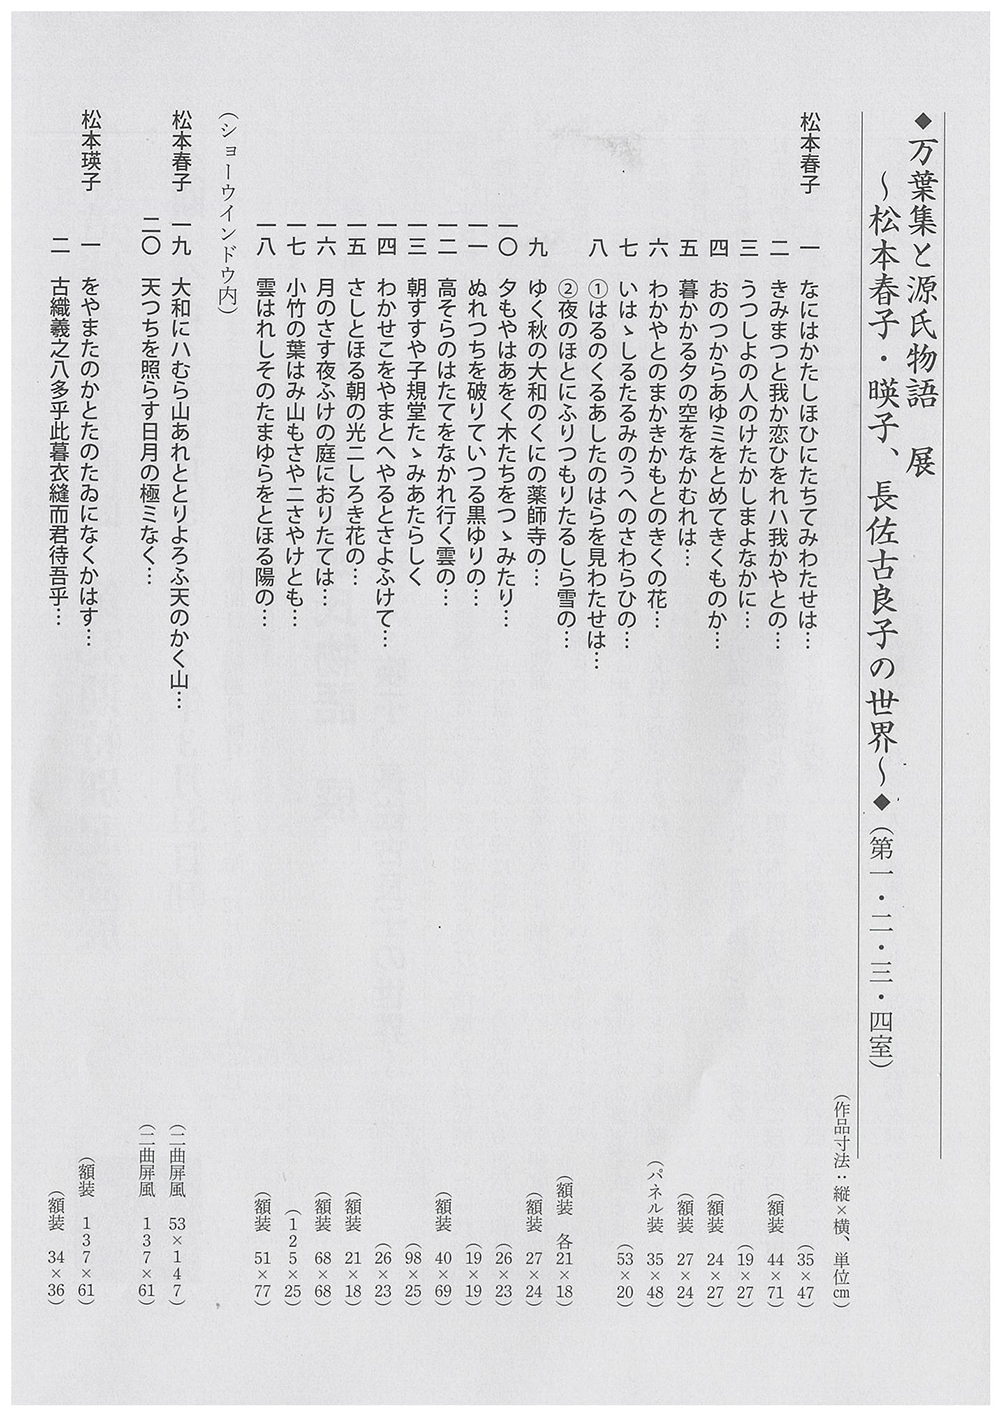 ◆万葉集と源氏物語　展
～松本春子・暎子、長佐古良子の世界～◆（第一・二・三・四室）
（作品寸法：縦×横、単位㎝）
松本春子　一　なにはかたしほひにたちてみわたせは…　（35×47）
二　きみまつと我か恋ひをれハ我かやとの…　（額装　44×71）
三　うつしよの人のけたかしまよなかに…　（19×27）
四　おのつからあゆミをとめてきくものか…　（額装　24×27）
五　暮かかる夕の空をなかむれは…　（額装　27×24）
六　わかやとのまかきかもとのきくの花…　（パネル装　35×48）
七　いはゝしるたるみのうへのさわらひの…　（53×20）
八　①はるのくるあしたのはらを見わたせは…
②夜のほとにふりつもりたるしら雪の…　（額装　各21×18）
九　ゆく秋の大和のくにの薬師寺の…　（額装　27×24）
一〇　夕もやはあをく木たちをつゝみたり…　（26×23）
一一　ぬれつちを破りていつる黒ゆりの…　（19×19）
一二　高そらのはたてをなかれ行く雲の…　（額装　40×69）
一三　朝すすや子規堂たゝみあたらしく　（98×25）
一四　わかせこをやまとへやるとさよふけて…　（26×23）
一五　さしとほる朝の光二しろき花の…　（額装　21×18）
一六　月のさす夜ふけの庭におりたては…　（額装　68×68）
一七　小竹の葉はみ山もさや二さやけとも…　（125×25）
一八　雲はれしそのたまゆらをとほる陽の…　（額装　51×77）
（ショーウインドウ内）
松本春子　一九　大和にハむら山あれととりよろふ天のかく山…　（二曲屏風　53×147）
二〇　天つちを照らす日月の極ミなく…　（二曲屏風　137×61）
松本瑛子　一　をやまたのかとたのたゐになくかはす…　（額装　137×61）
二　古織義之八多乎此暮衣縫而君待吾乎…　（額装　34×36）